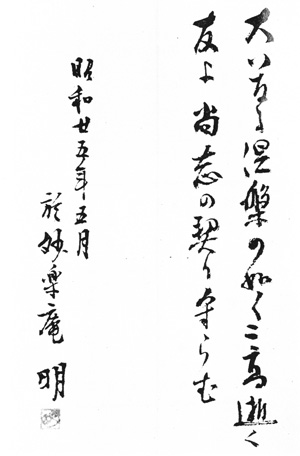 大いなる涅槃の如く二高逝く
友よ尚志の契り守らむ
昭和廿五年五月
於妙楽庵 明